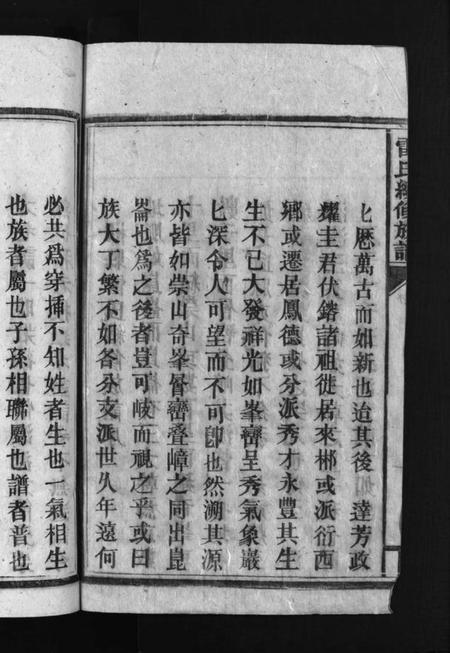 雷氏續修族譜
匕歷萬古而如新也迨其後 達芳政
耀圭君伏鍇諸祖徙居來郴或派衍西
鄉或遷居鳳德或分派秀才永豐其生
生不已大發祥光如峯巒呈秀氣象巖
匕深令人可望而不可卽也然溯其源
亦皆如崇山奇峯層巒叠嶂之同出崑
崙也爲之後者豈可岐而視之乎或曰
族大丁繁不如各分支派世久年遠何
必共爲穿揷不知姓者生也一氣相生
也族者屬也子孫相聯屬也譜者普也